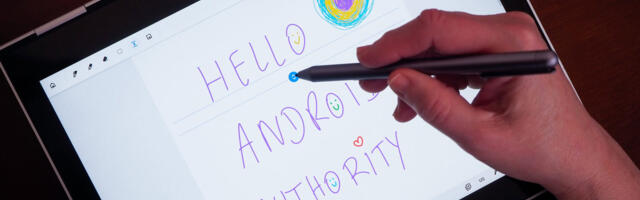 HELLO
ANDROID
AUTHORITY